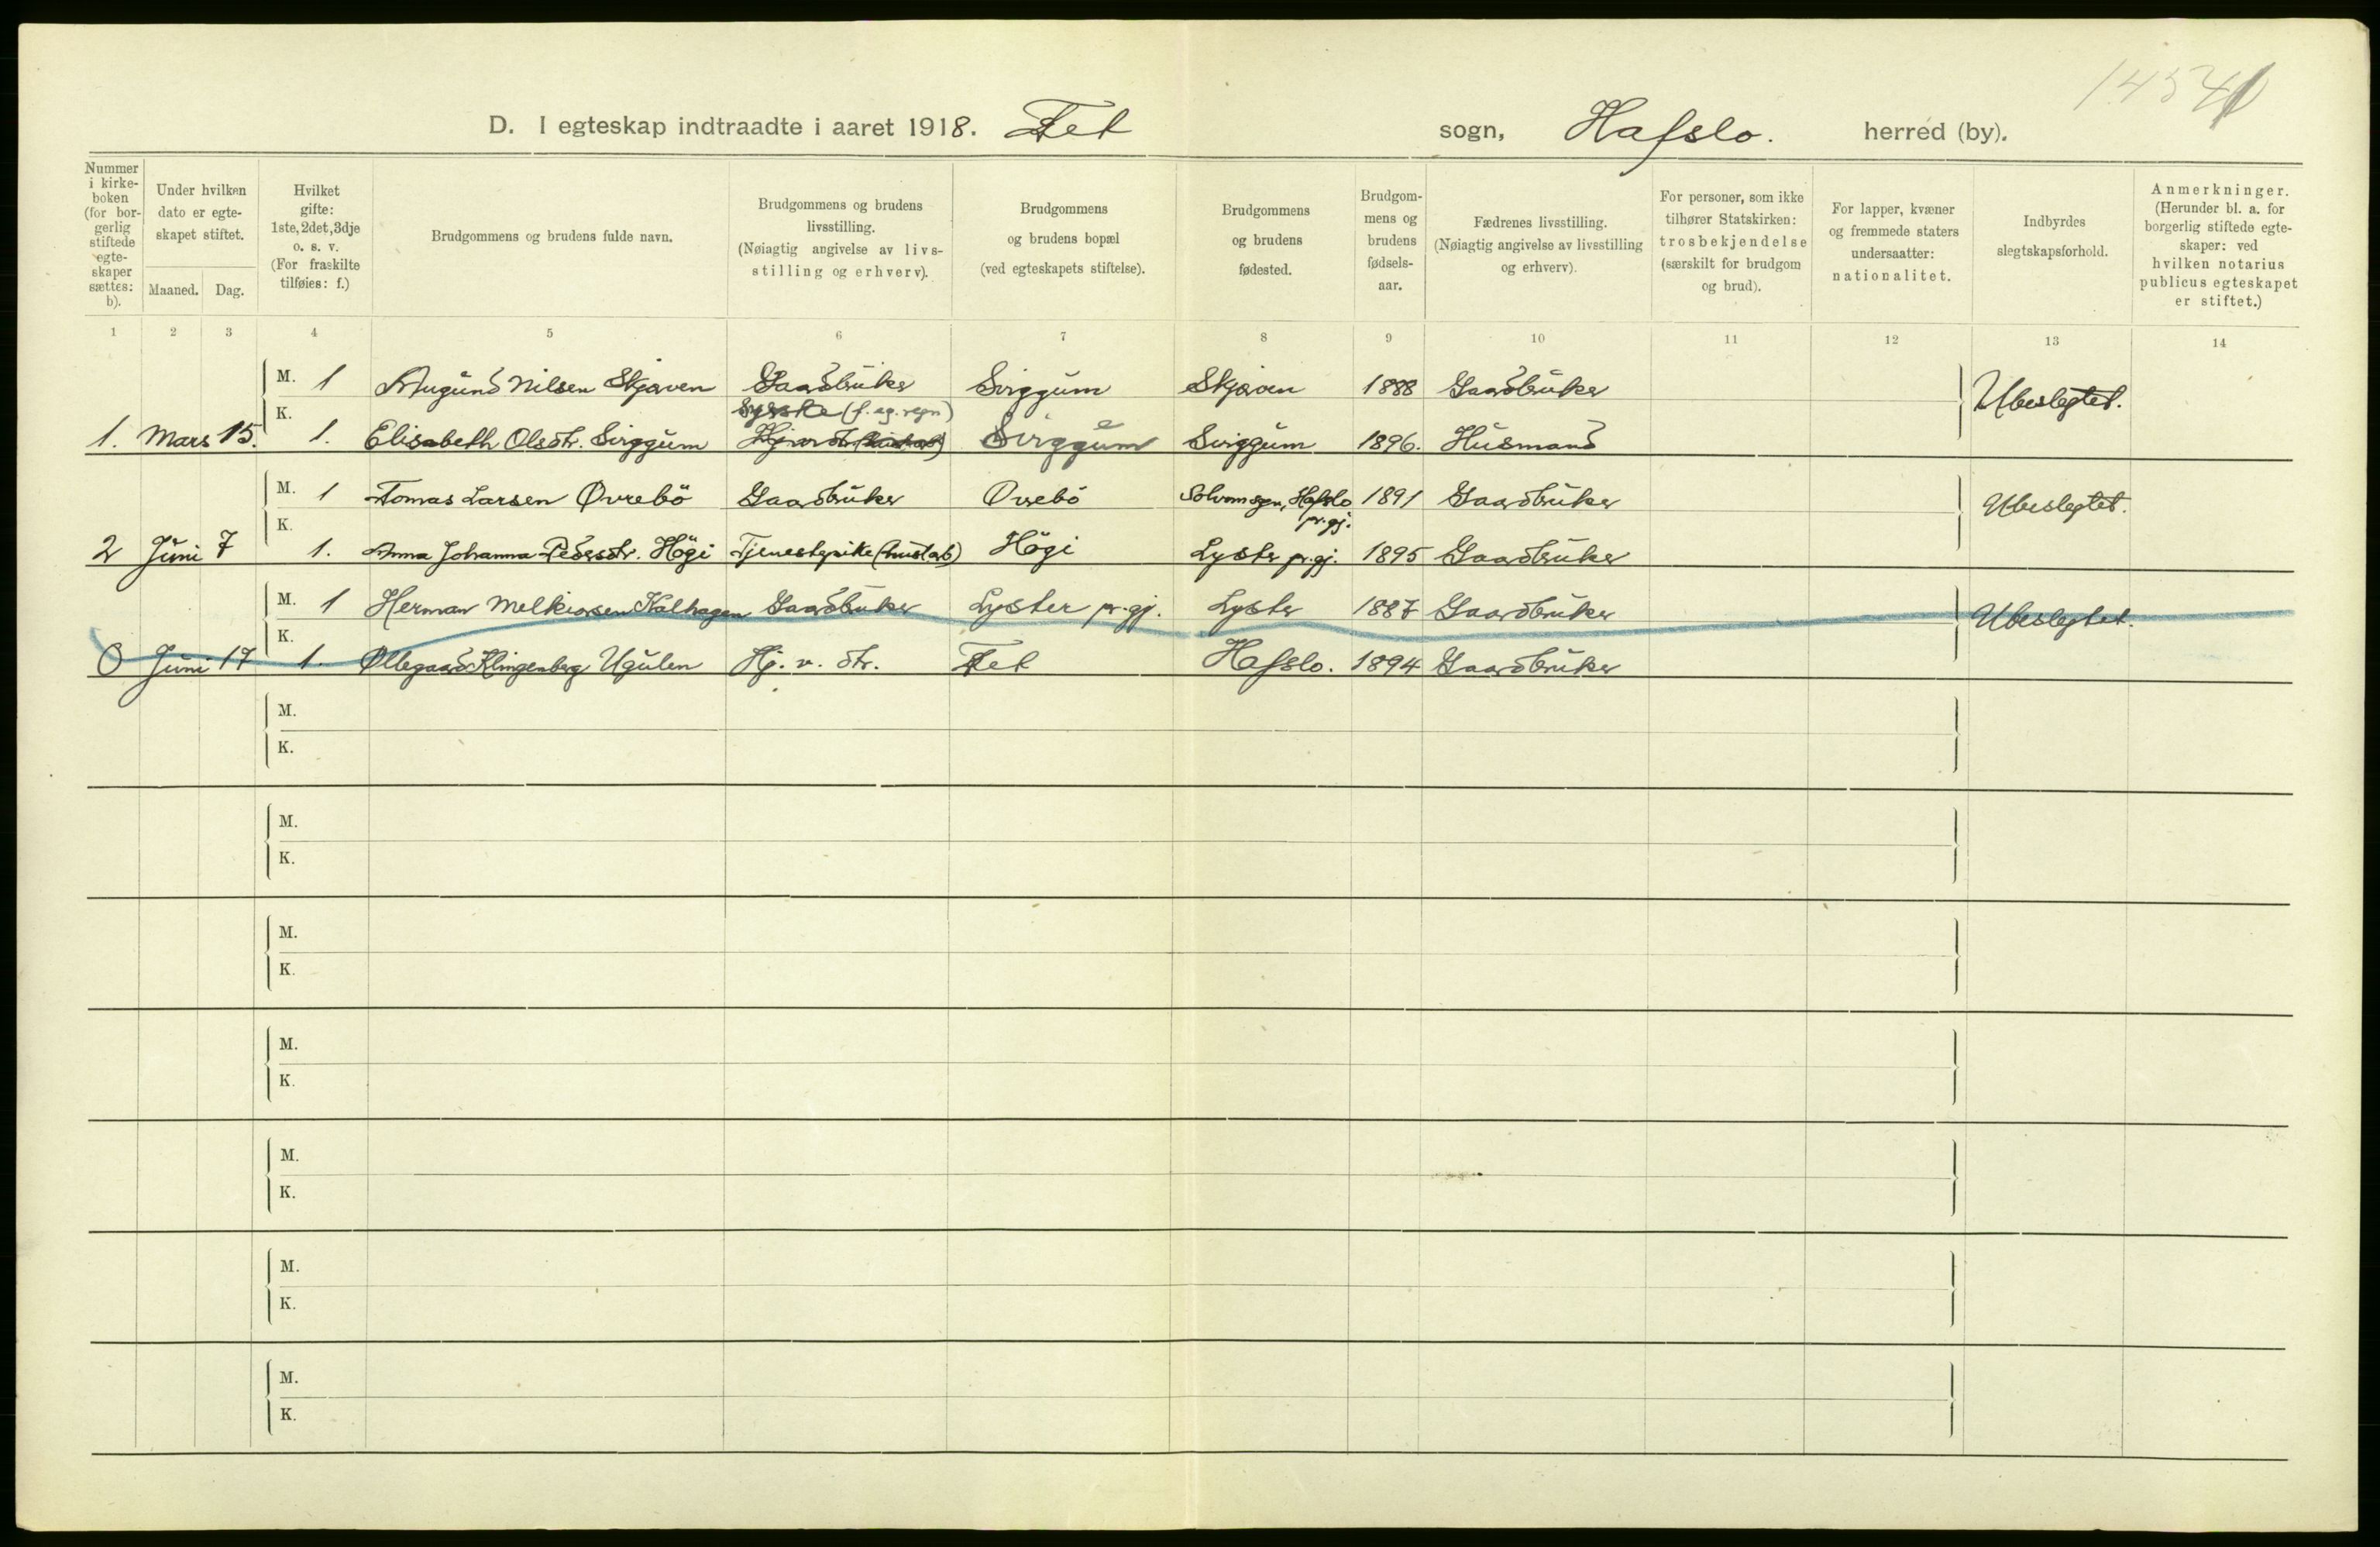 D. I egteskap indtraadte i aaret 1918. Fet sogn, Hafslo. herred (by).
Nummer i kirke-boken (for bor-gerlig stiftede egte-skaper sættes: b).
Under hvilken dato er egte-skapet stiftet.
Maaned. Dag.
Hvilket gifte: 1ste, 2det, 3dje o. s. v. (For fraskilte tilføies: f.)
Brudgommens og brudens fulde navn.
Brudgommens og brudens livsstilling. (Nøiagtig angivelse av livs-stilling og erhverv).
Brudgommens og brudens bopæl (ved egteskapets stiftelse).
Brudgommens og brudens fødested.
Brudgom-mens og brudens fødsels-aar.
Fædrenes livsstilling. (Nøiagtig angivelse av livsstilling og erhverv).
For personer, som ikke tilhører Statskirken: trosbekjendelse (særskilt for brudgom og brud).
For lapper, kvæner og fremmede staters undersaatter: nationalitet.
Indbyrdes slegtskapsforhold.
Anmerkninger. (Herunder bl. a. for borgerlig stiftede egte-skaper: ved hvilken notarius publicus egteskapet er stiftet.)
1 2 3 4 5 6 7 8 9 10 11 12 13 14
M. 1 Augund Nilsen Skjerven Gaardbruker Sviggum Skjerven 1888 Gaardbruker Ubeslegtet.
Syerske (f. eg. regn)
1. Mars 15. K. 1. Elisabeth Olsdtr. Sviggum Sviggum Sviggum 1896. Husmand
M. 1 Tomas Larsen Øvrebö Gaardbruker Ovrebö Solvorn sogn, Hafslo pr.gj. 1891 Gaardbruker Ubeslegtet.
2 Juni 7 K. 1. Anna Johanna Pedersdtr. Högi Tjenestepike (husl. arb) Högi Lyster pr.gj. 1895 Gaardbruker
M. 1 Herman Melkiorsen Kalhagen Gaardbruker Lyster pr.gj. Lyster 1887 Gaardbruker Ubeslegtet.
0 Juni 17 K. 1. Ollegaard Klingenberg Ugulen Hj. v. dtr. Fet Hafslo. 1894 Gaardbruker
M.
K.
M.
K.
M.
K.
M.
K.
M.
K.
M.
K.
M.
K.